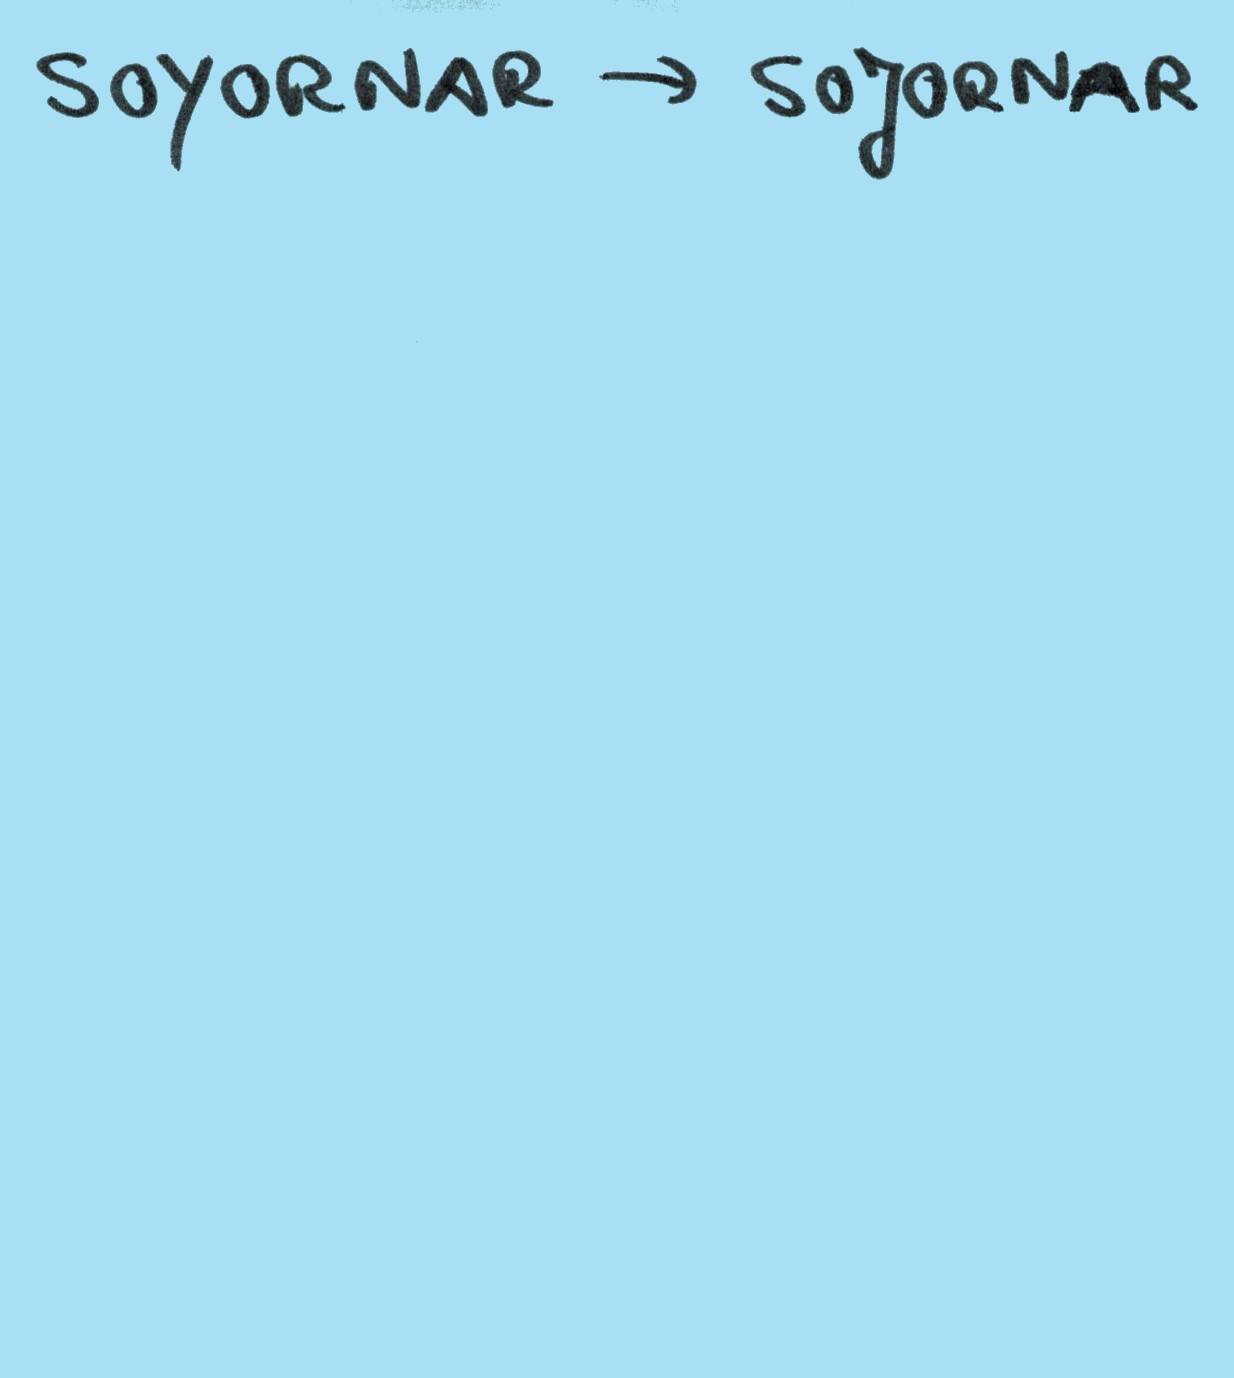 SOYORNAR → SOJORNAR